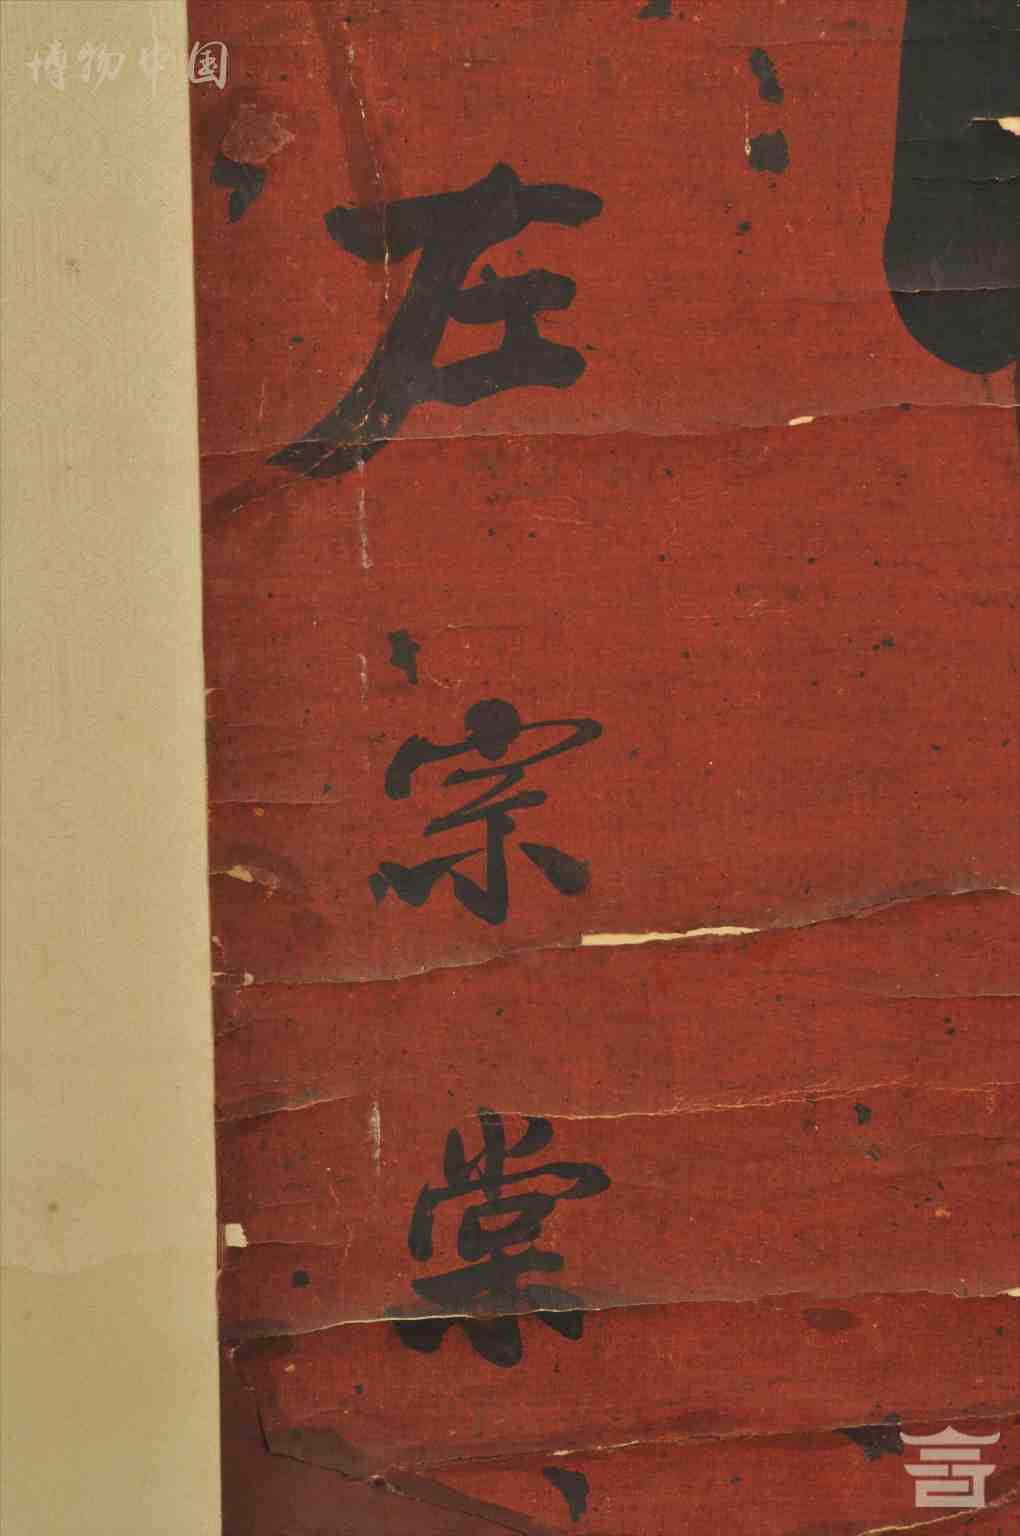 博物中国
左宗棠